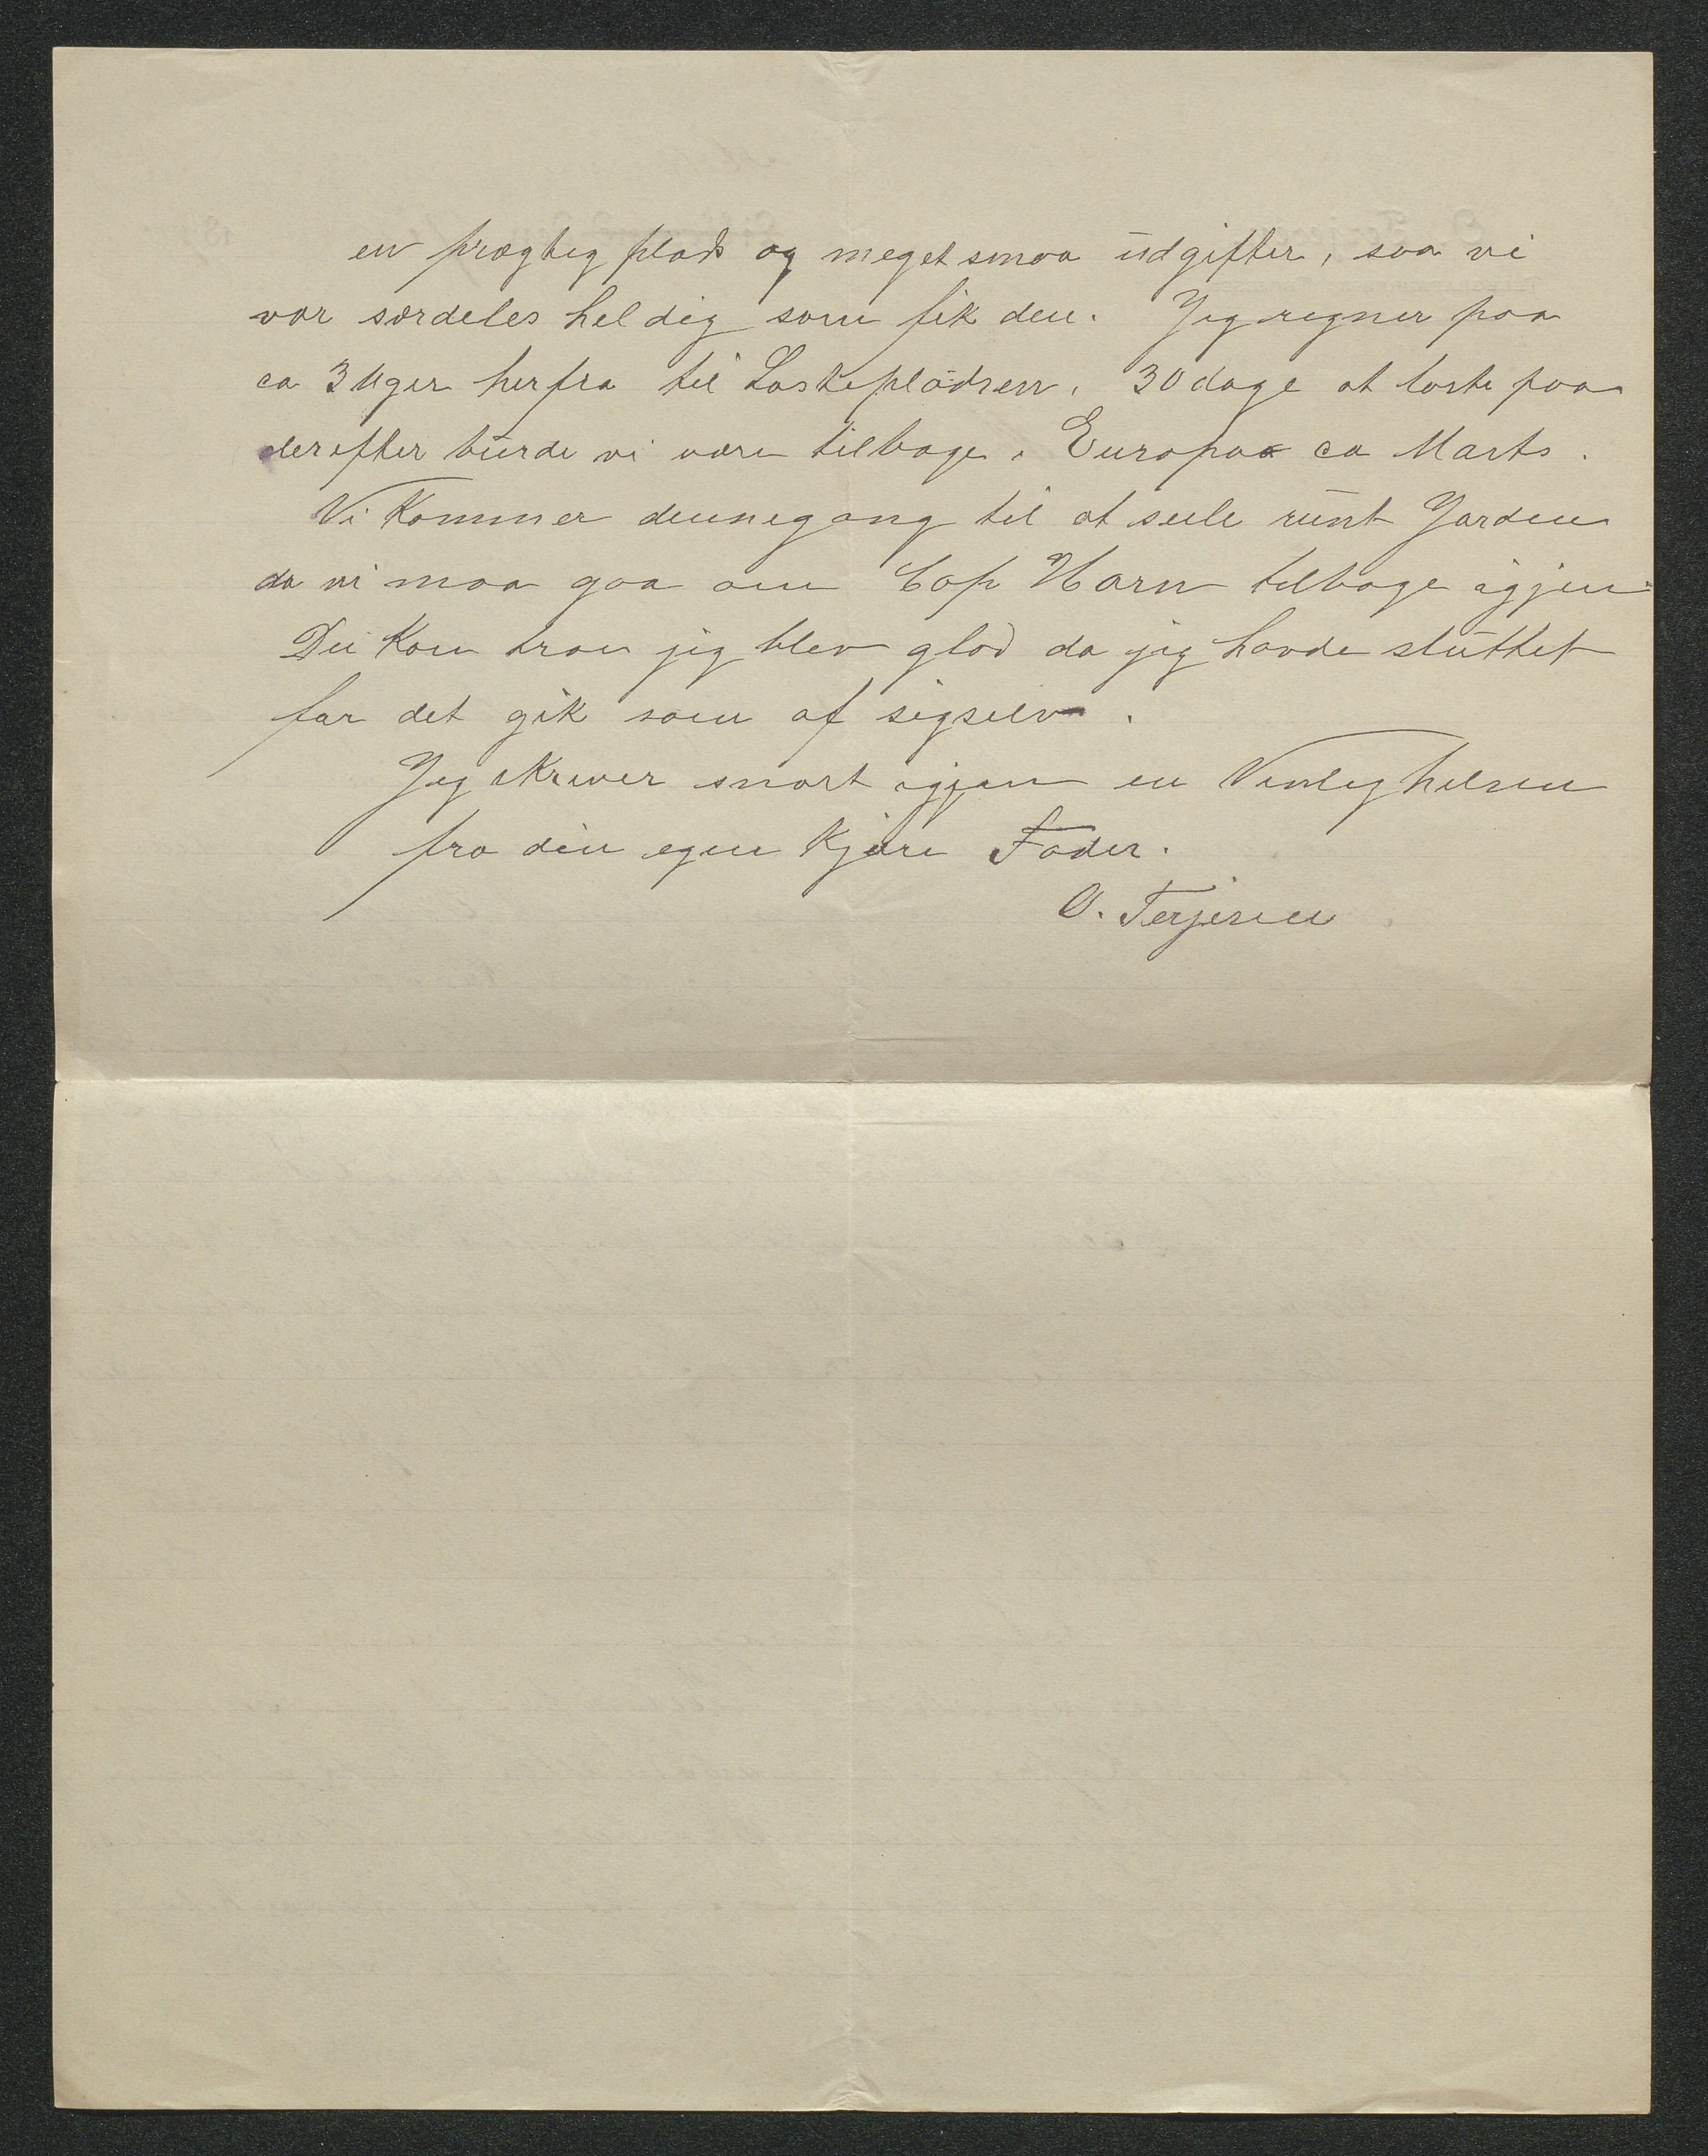 en prægtig plads og meget smaa udgifter, saa vi
var særdeles heldig som fik den. Jeg regner paa
ca 3 Uger herfra til Lastepladsen, 30 dage at laste paa
derefter burde vi være tilbage i Europa ca Marts.
Vi kommer dennegang til at seile runt Jorden
da vi maa gaa om Cap Horn tilbage igjen
Du kan tro jeg blev glad da jeg havde sluttet
for det gik som af sigselv.
Jeg skriver snart igjen en Venlig hilsen
fra din egen kjære Fader.
O. Terjesen